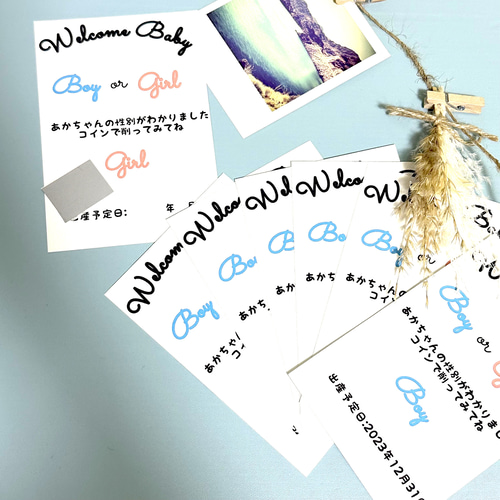 Welcome Baby
Boy or Girl
あかちゃんの性別がわかりました
コインで削ってみてね
Girl
産予定日: 年
Welcom
Boy
あかちゃん
コイン
Welco
Bo
あかち
Wel
Bo
あか
Welco
Bo
あかち
We
Boy
あかちゃんの
コイン
Boy or Gi
あかちゃんの性別がわかりまし
コインで削ってみてね
Boy
出産予定日:2023年12月31